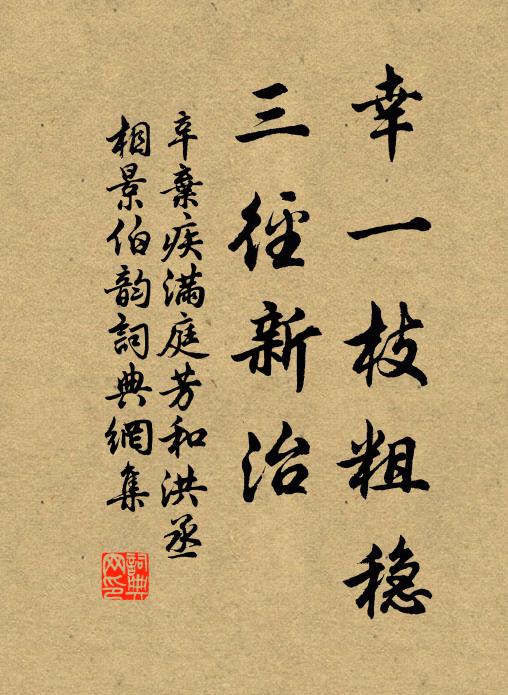 幸一枝粗穏
三徑新治
辛棄疾滿庭芳和洪丞
相景伯韵詞典網集
詞典
网印